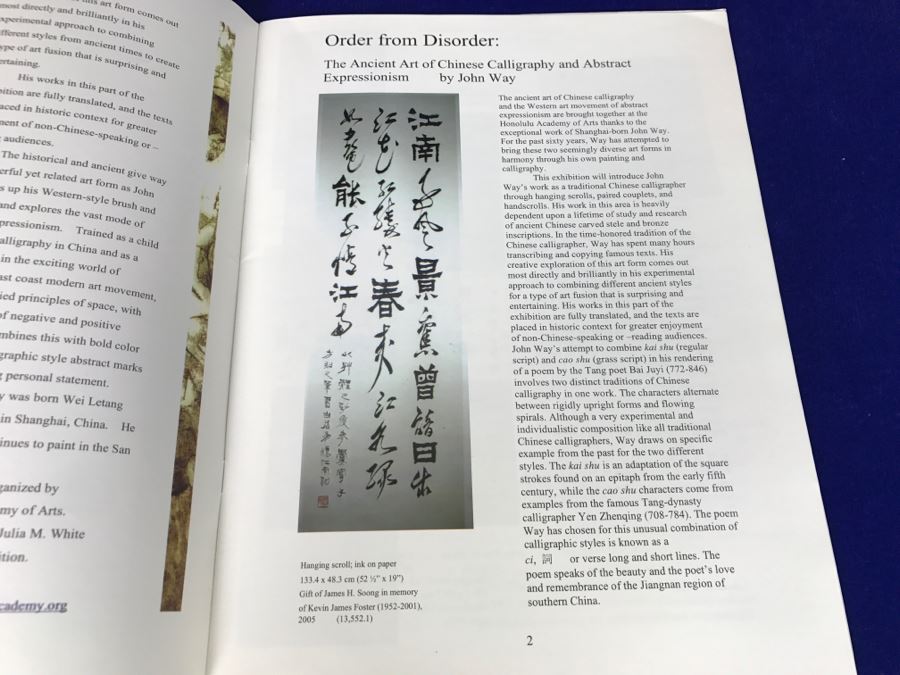 this art form comes out
most directly and brilliantly in his
experimental approach to combining
different styles from ancient times to create
type of art fusion that is surprising and
ertaining.
His works in this part of the
bition are fully translated, and the texts
aced in historic context for greater
ment of non-Chinese-speaking or –
audiences.
The historical and ancient give way
erful yet related art form as John
s up his Western-style brush and
and explores the vast mode of
pressionism. Trained as a child
alligraphy in China and as a
in the exciting world of
ast coast modern art movement,
ied principles of space, with
of negative and positive
mbines this with bold color
graphic style abstract marks
g personal statement.
y was born Wei Letang
in Shanghai, China. He
tinues to paint in the San
ganized by
my of Arts.
Julia M. White
ition.
cademy.org
Order from Disorder:
The Ancient Art of Chinese Calligraphy and Abstract
Expressionism by John Way
江南好風景舊曾諳日出
江花紅勝火春來江水綠
如藍能不憶江南
Hanging scroll; ink on paper
133.4 x 48.3 cm (52 ½” x 19”)
Gift of James H. Soong in memory
of Kevin James Foster (1952-2001),
2005 (13,552.1)
The ancient art of Chinese calligraphy
and the Western art movement of abstract
expressionism are brought together at the
Honolulu Academy of Arts thanks to the
exceptional work of Shanghai-born John Way.
For the past sixty years, Way has attempted to
bring these two seemingly diverse art forms in
harmony through his own painting and
calligraphy.
This exhibition will introduce John
Way's work as a traditional Chinese calligrapher
through hanging scrolls, paired couplets, and
handscrolls. His work in this area is heavily
dependent upon a lifetime of study and research
of ancient Chinese carved stele and bronze
inscriptions. In the time-honored tradition of the
Chinese calligrapher, Way has spent many hours
transcribing and copying famous texts. His
creative exploration of this art form comes out
most directly and brilliantly in his experimental
approach to combining different ancient styles
for a type of art fusion that is surprising and
entertaining. His works in this part of the
exhibition are fully translated, and the texts are
placed in historic context for greater enjoyment
of non-Chinese-speaking or –reading audiences.
John Way's attempt to combine kai shu (regular
script) and cao shu (grass script) in his rendering
of a poem by the Tang poet Bai Juyi (772-846)
involves two distinct traditions of Chinese
calligraphy in one work. The characters alternate
between rigidly upright forms and flowing
spirals. Although a very experimental and
individualistic composition like all traditional
Chinese calligraphers, Way draws on specific
example from the past for the two different
styles. The kai shu is an adaptation of the square
strokes found on an epitaph from the early fifth
century, while the cao shu characters come from
examples from the famous Tang-dynasty
calligrapher Yen Zhenqing (708-784). The poem
Way has chosen for this unusual combination of
calligraphic styles is known as a
ci, 詞 or verse long and short lines. The
poem speaks of the beauty and the poet's love
and remembrance of the Jiangnan region of
southern China.
2